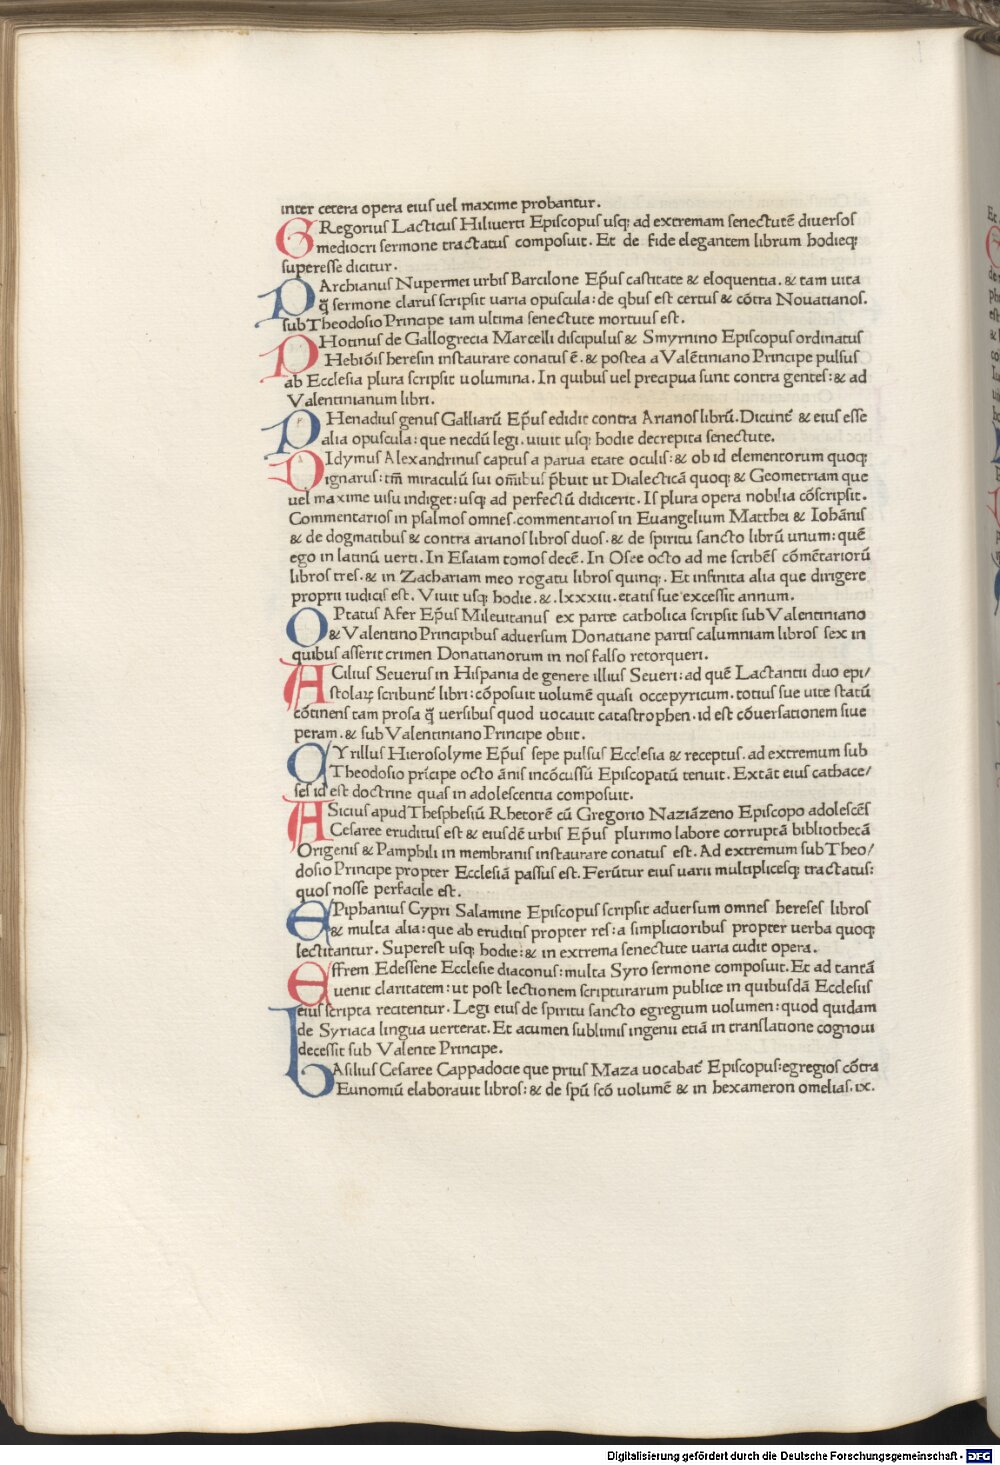 inter cetera opera eius uel maxime probantur.
GRegorius Lacticus Hiliuerti Episcopus usq; ad extremam senectutē diuersos
mediocri sermone tractatus composuit. Et de fide elegantem librum hodieq;
superesse dicitur.
PArchianus Nupermei urbis Barcilone Ep̄us castitate & eloquentia. & tam uita
q̄ sermone clarus scripsit uaria opuscula: de qbus est certus & cōtra Nouatianos.
sub Theodosio Principe iam ultima senectute mortuus est.
PHotinus de Gallogrecia Marcelli discipulus & Smyrnino Episcopus ordinatus
Hebiōis heresin instaurare conatus ē. & postea a Valētiniano Principe pulsus
ab Ecclesia plura scripsit uolumina. In quibus uel precipua sunt contra gentes: & ad
Valentinianum libri.
PHenadius genus Galliarū Ep̄us edidit contra Arianos librū. Dicunt̄ & eius esse
alia opuscula: que necdū legi. uiuit usq; hodie decrepita senectute.
DIdymus Alexandrinus captus a parua etate oculis: & ob id elementorum quoq;
ignarus: tm̄ miraculū sui om̄ibus p̄buit ut Dialecticā quoq; & Geometriam que
uel maxime uisu indiget: usq; ad perfectū didicerit. Is plura opera nobilia cōscripsit.
Commentarios in psalmos omnes. commentarios in Euangelium Matthei & Iohānis
& de dogmatibus & contra arianos libros duos. & de spiritu sancto librū unum: quē
ego in latinū uerti. In Esaiam tomos decē. In Osee octo ad me scribēs cōmētariorū
libros tres. & in Zachariam meo rogatu libros quinq;. Et infinita alia que dirigere
proprii iudicis est. Viuit usq; hodie. & .lxxxiii. etatis sue excessit annum.
OPtatus Afer Ep̄us Mileuitanus ex parte catholica scripsit sub Valentiniano
& Valentino Principibus aduersum Donatiane partis calumniam libros sex in
quibus asserit crimen Donatianorum in nos falso retorqueri.
ACilius Seuerus in Hispania de genere illius Seueri: ad quē Lactantii duo epi/
stolaꝝ scribunt̄ libri: cōposuit uolumē quasi occepyricum. totius sue uite statū
cōtinens tam prosa q̄ uersibus quod uocauit catastrophen. id est cōuersationem siue
peram. & sub Valentiniano Principe obiit.
CYrillus Hierosolyme Ep̄us sepe pulsus Ecclesia & receptus. ad extremum sub
Theodosio prīcipe octo ānis incōcussū Episcopatū tenuit. Extāt eius cathace/
ses id est doctrine quas in adolescentia composuit.
ASicius apud Thesphesiū Rhetorē cū Gregorio Naziāzeno Episcopo adolescēs
Cesaree eruditus est & eiusdē urbis Ep̄us plurimo labore corruptā bibliothecā
Origenis & Pamphili in membranis instaurare conatus est. Ad extremum sub Theo/
dosio Principe propter Ecclesiā passus est. Ferūtur eius uarii multiplicesq; tractatus:
quos nosse perfacile est.
EPiphanius Cypri Salamine Episcopus scripsit aduersum omnes hereses libros
& multa alia: que ab eruditis propter res: a simplicioribus propter uerba quoq;
lectitantur. Superest usq; hodie: & in extrema senectute uaria cudit opera.
Effrem Edessene Ecclesie diaconus: multa Syro sermone composuit. Et ad tantā
uenit claritatem: ut post lectionem scripturarum publice in quibusdā Ecclesiis
eius scripta recitentur. Legi eius de spiritu sancto egregium uolumen: quod quidam
de Syriaca lingua uerterat. Et acumen sublimis ingenii etiā in translatione cognoui
decessit sub Valente Principe.
bAsilius Cesaree Cappadocie que prius Maza uocabat̄ Episcopus: egregios cōtra
Eunomiū elaborauit libros: & de spū scō uolumē & in hexameron omelias. ix.
Digitalisierung gefördert durch die Deutsche Forschungsgemeinschaft - DFG